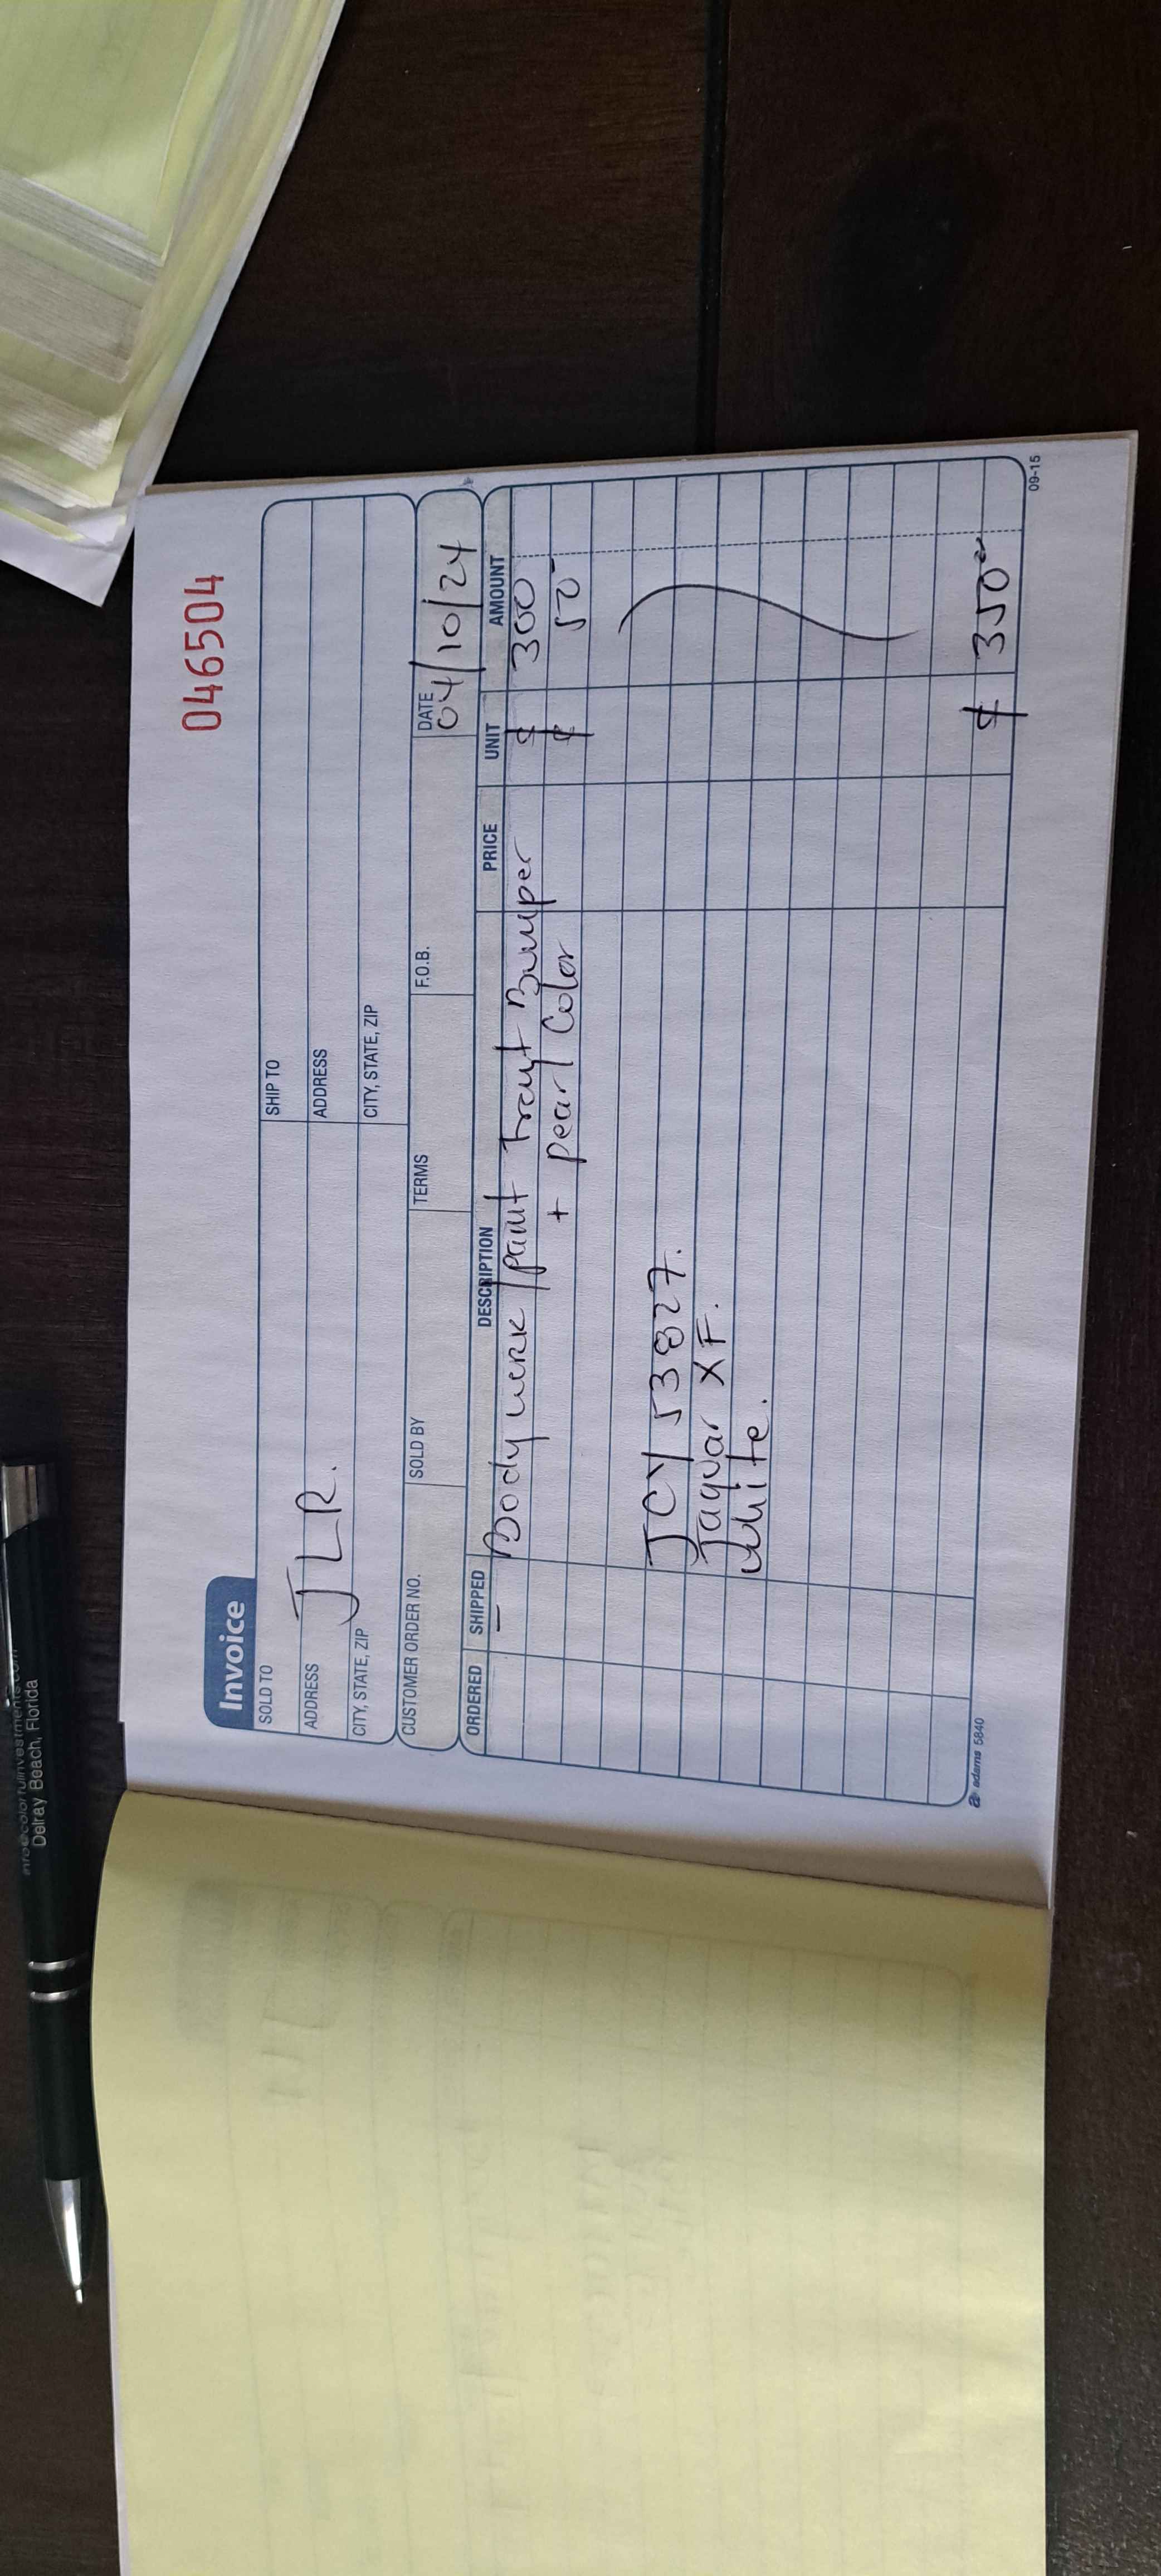 046504
Invoice
SOLD TO
SHIP TO
JLR.
ADDRESS
ADDRESS
CITY, STATE, ZIP
CITY, STATE, ZIP
CUSTOMER ORDER NO.
SOLD BY
TERMS
F.O.B.
DATE
04/10/24
ORDERED SHIPPED DESCRIPTION PRICE UNIT AMOUNT
- Body werk/paint Front Bumper $ 300
+ pearl Color $ 50
JCY 53827.
Jaguar XF.
white.
$ 350
adams 5840
09-15
Delray Beach, Florida